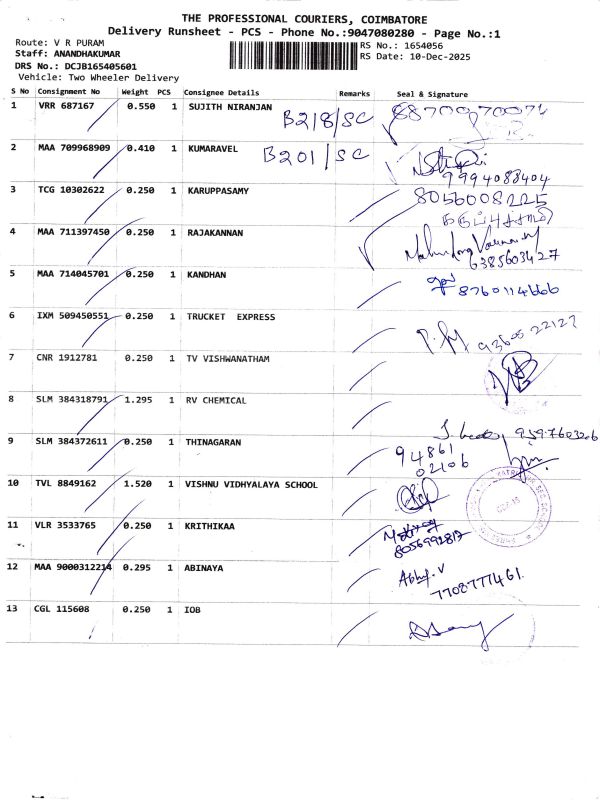 THE PROFESSIONAL COURIERS, COIMBATORE
Delivery Runsheet - PCS - Phone No.:9047080280 - Page No.:1
Route: V R PURAM
Staff: ANANDHAKUMAR
DRS No.: DCJB165405601
Vehicle: Two Wheeler Delivery
RS No.: 1654056
RS Date: 10-Dec-2025
S No Consignment No Weight PCS Consignee Details Remarks Seal & Signature
1 VRR 687167 0.550 1 SUJITH NIRANJAN B218/SC 8870070074
2 MAA 709968909 0.410 1 KUMARAVEL B201/SC
9994088404
3 TCG 10302622 0.250 1 KARUPPASAMY 8056008225
கருப்பசாமி
4 MAA 711397450 0.250 1 RAJAKANNAN
6385603427
5 MAA 714045701 0.250 1 KANDHAN 8760114666
6 IXM 509450551 0.250 1 TRUCKET EXPRESS 9360522127
7 CNR 1912781 0.250 1 TV VISHWANATHAM
8 SLM 384318791 1.295 1 RV CHEMICAL
9597603206
9 SLM 384372611 0.250 1 THINAGARAN 94861
02106
10 TVL 8849162 1.520 1 VISHNU VIDHYALAYA SCHOOL
11 VLR 3533765 0.250 1 KRITHIKAA
8056992817
12 MAA 9000312214 0.295 1 ABINAYA Abhy.V
7708777461.
13 CGL 115608 0.250 1 IOB